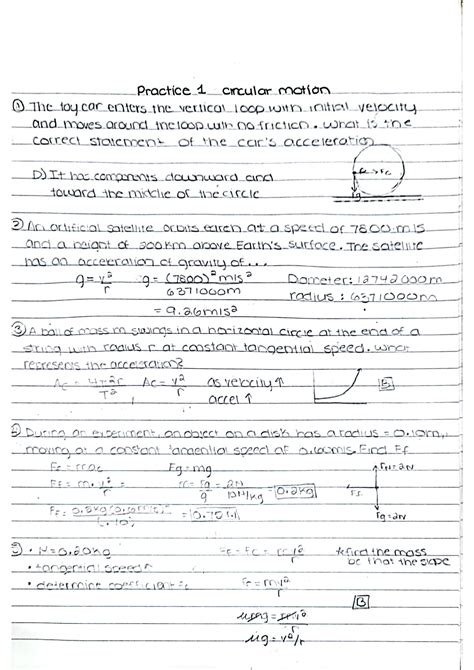 Practice 1 circular motion
① The toy car enters the vertical loop with initial velocity
and moves around the loop with no friction. What is the
correct statement of the car's acceleration
D) It has components downward and
toward the middle of the circle
Fc
Fg
② An artificial satellite orbits earth at a speed of 7800 m/s
and a height of 200km above Earth's surface. The satellite
has an acceleration of gravity of...
g = v²/r g = (7800)² m/s²/6371000m Diameter: 12742000m
radius: 6371000m
= 9.26m/s²
③ A ball of mass m swings in a horizontal circle at the end of a
string with radius r at constant tangential speed. What
represents the acceleration?
Ac = 4π²r/T² Ac = v²/r as velocity↑
accel ↑
B
During an experiment, an object on a disk has a radius = 0.10m,
moving at a constant tangential speed of 0.60m/s. Find Ff
Fc = mac Fg = mg FN = 2N
Ff = m·v²/r = m = Fg/g = 2N/10N/kg = 0.2kg Ff
Fg = 2N
= 0.70N
⑤ • M = 0.20kg Ff = Fc = mv²/r *find the mass
• tangential speed be that the slope
• determine Fc = mv²/r
B
μmg = mv²/r
μg = v²/r